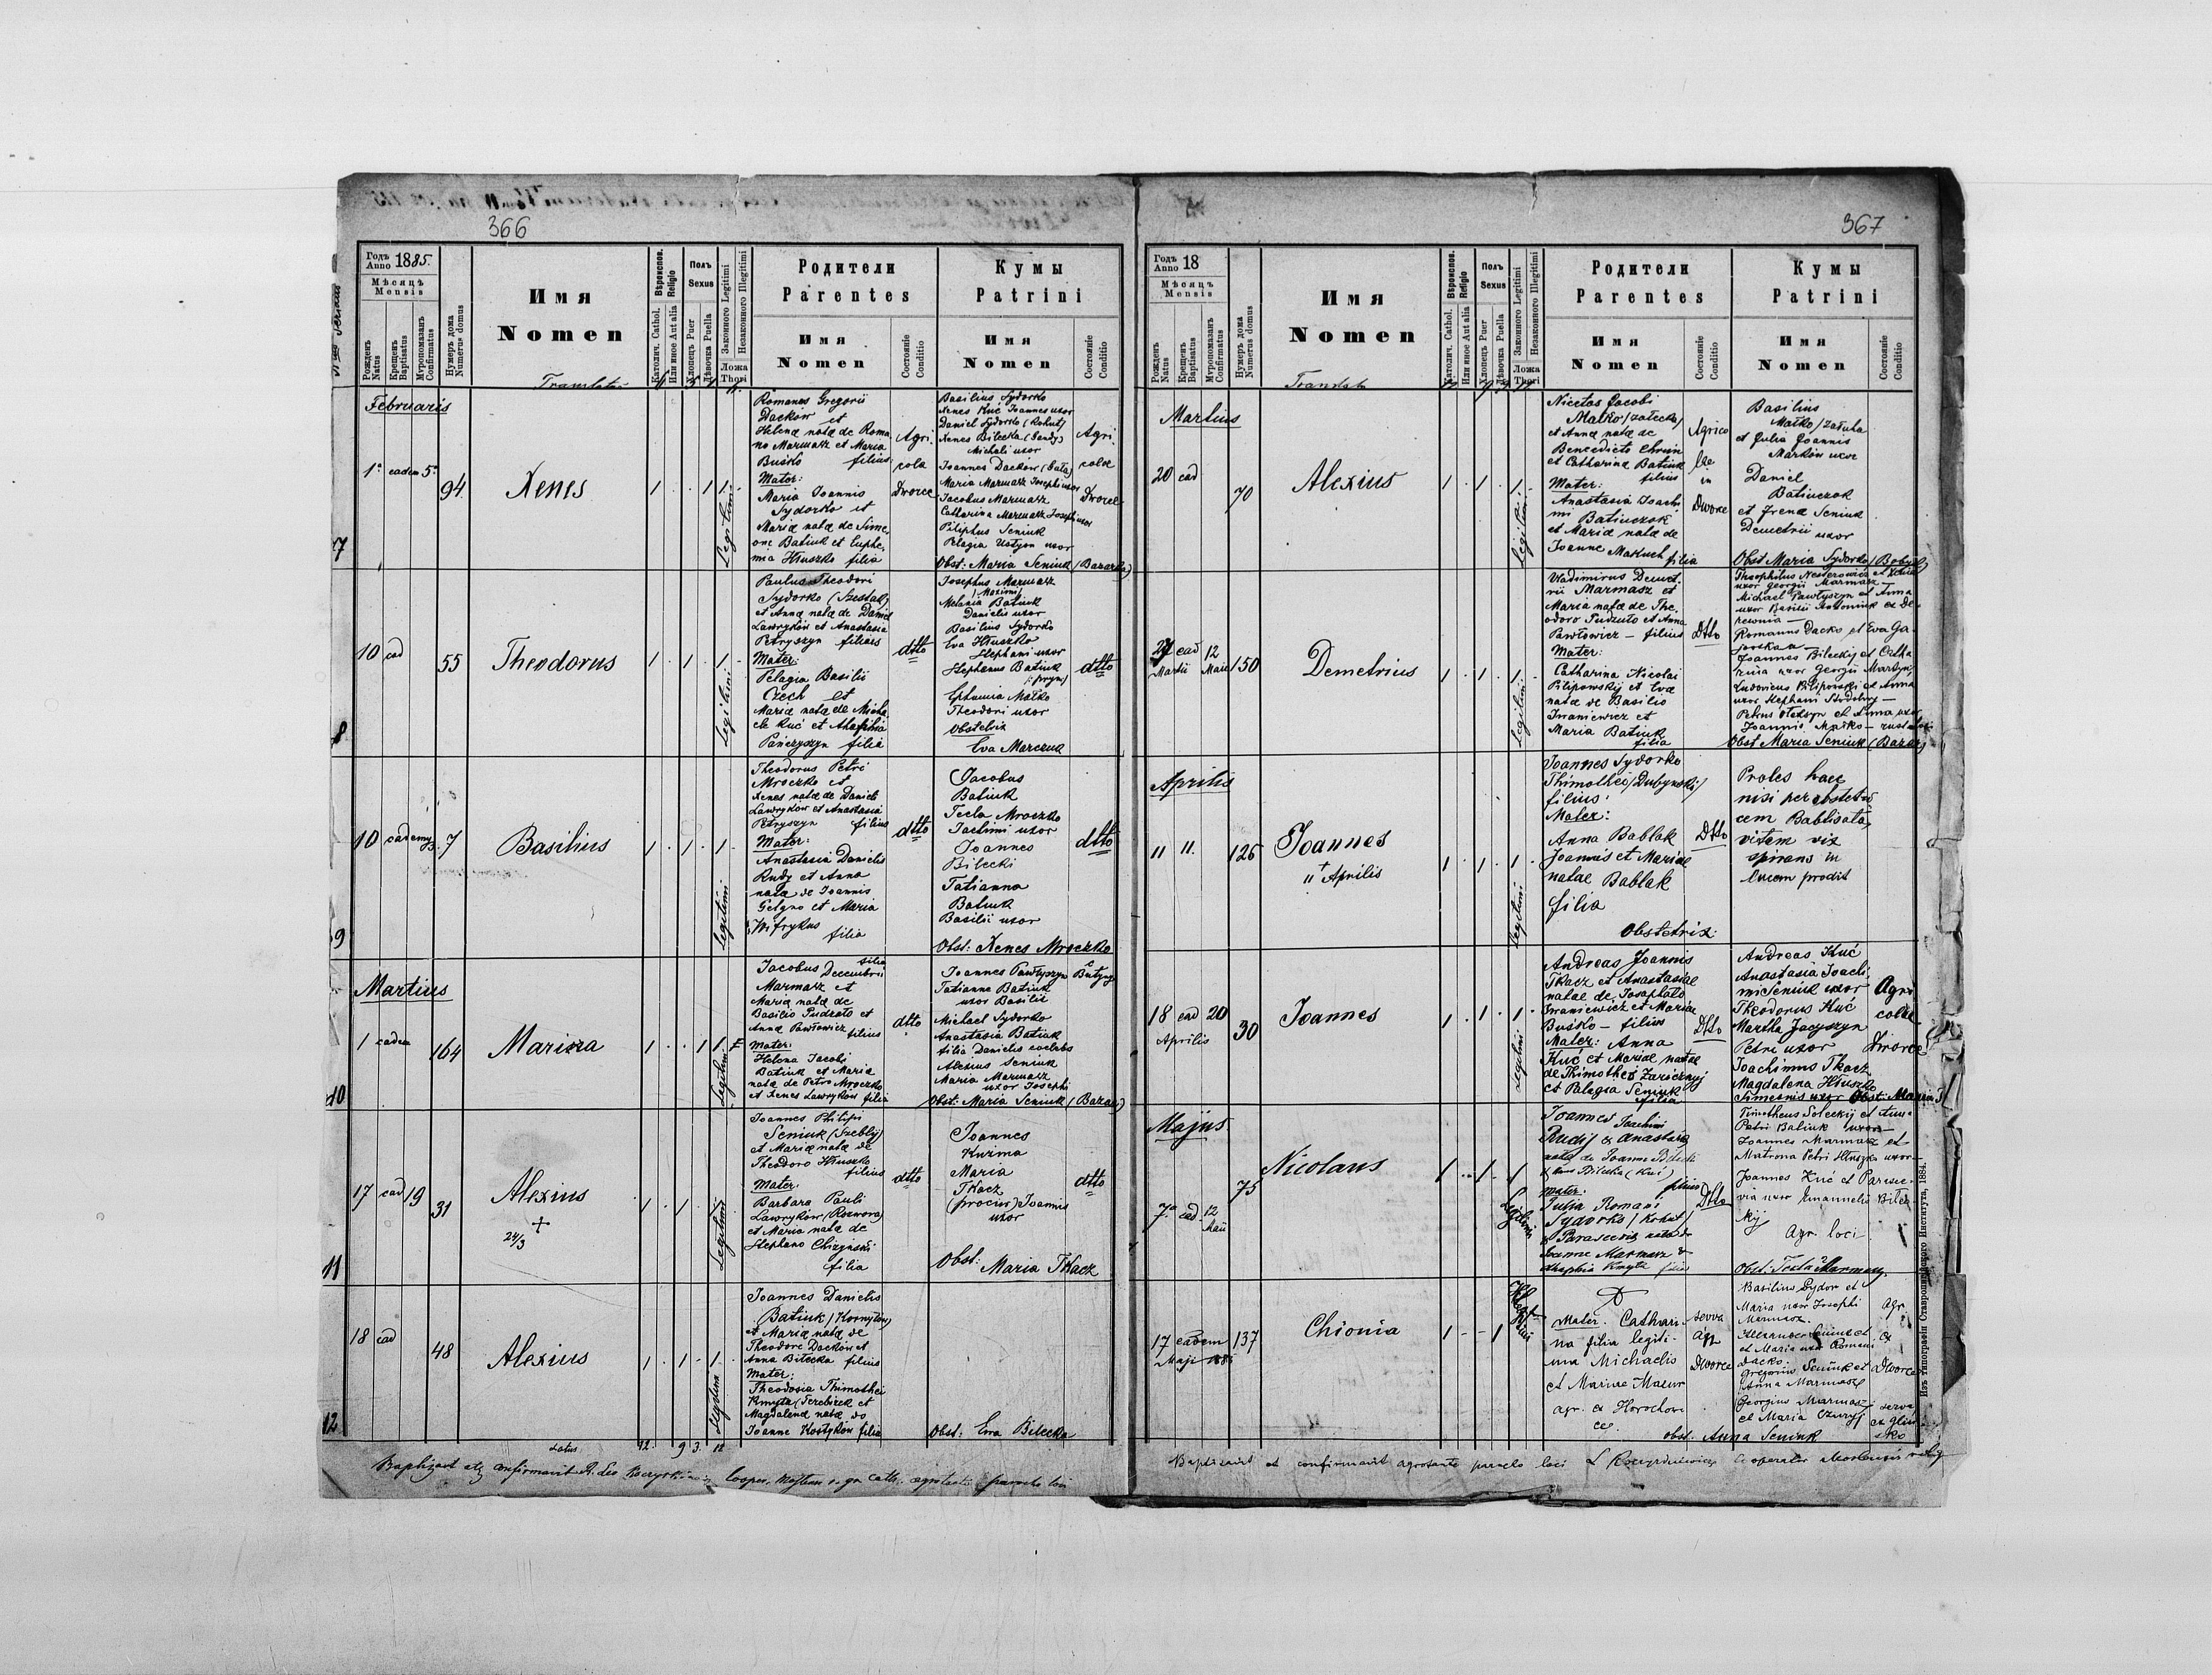 366
Годъ Anno 1885.
Мѣсяцъ Mensis
Рожденъ Natus
Крещенъ Baptisatus
Мѵропомазанъ Confirmatus
Нумеръ дома Numerus domus
Имя
Nomen
Вѣроиспов. Religio
Католич. Cathol.
Или иное Aut alia
Полъ Sexus
Хлопецъ Puer
Дѣвочка Puella
Законного Legitimi
Незаконного Illegitimi
Ложа Thori
Родители
Parentes
Имя
Nomen
Состояніе Conditio
Кумы
Patrini
Имя
Nomen
Состояніе Conditio
Februaris
7
1ª eadem 5ª
94
Xenes
1 . . 1 1 .
Legitimi
Romanus Gregorii
Dackow et
Helena nata de Roma
no Marmasz et Maria
Buśko filius
Mater:
Maria Joannis
Sydorko et
Maria nata de Sime
one Batiuk et Euphe
mia Hłuszko filia
Agri
cola
Dworce
Basilius Sydorko
Xenes Kuć Joannes uxor
Daniel Sydorko (Kohut)
Xenes Bilecka
Michaeli uxor
Joannes Dackow (Gała)
Maria Marmasz Josephi uxor
Jacobus Marmasz
Catharina Marmasz Josephi uxor
Philiphus Seniuk
Pelagia Ustyan uxor
Obst: Maria Seniuk (Bazarka)
Agri
colae
Dworce
8
10 ead
55
Theodorus
1 . 1 . 1 .
Legitimi
Paulus Theodori
Sydorko (Szestak)
et Anna nata de Daniel
Lawryków et Anastasia
Petryszyn filius
Mater:
Pelagia Basilii
Czech et
Maria nata de Micha
ele Kuć et Anastasia
Pańczyszyn filia
dtto
Josephus Marmasz
(Maximi)
Melania Batiuk
Danielis uxor
Basilius Sydorko
Eva Hłuszko
Stephani uxor
Stephanus Batiuk
Ephemia Małko
Theodori uxor
Obstetrix
Eva Marczuk
dtto
9
10 eadem
7
Basilius
1 . 1 . 1 .
Legitimi
Theodorus Petri
Mroczko et
Xenes nata de Daniele
Lawryków et Anastasia
Petryszyn filius
Mater:
Anastasia Danielis
Rudy et Anna
nata de Joannis
Maria
filia
dtto
Jacobus
Batiuk
Tecla Mroczko
Jachimi uxor
Joannes
Bilecki
Tatianna
Batiuk
Basilii uxor
Obst: Xenes Mroczko
dtto
Martius
10
1 eadem
164
Marina
1 . . 1 1
Legitimi
Jacobus
Marmasz et
Maria nata de
Basilio Pudzato et
Anna Pawłowicz filius
Mater:
Helena Jacobi
Batiuk et Maria
nata de Petro Mroczko
et Xenes Lawryków filia
dtto
Joannes Pawłyszyn
Tatianna Batiuk
uxor Basilii
Michael Sydorko
Anastasia Batiuk
filia Danielis caelebs
Alexius Seniuk
Maria Marmasz
uxor Josephi
Obst: Maria Seniuk (Bazar)
11
17 ead 19
31
Alexius
+
24/3
1 . 1 . 1
Legitimi
Joannes Philipi
Seniuk (Szebly)
et Maria nata de
Theodoro Hłuszko
filius
Mater:
Barbara Pauli
Lawryków (Rozwora)
et Maria nata de
Stephano Chizyński
filia
dtto
Joannes
Kuzma
Maria
Tkacz
(procius) Joannis
uxor
Obst: Maria Tkacz
dtto
12
18 ead
48
Alexius
1 . 1 . 1
Legitimi
Joannes Danielis
Batiuk (Kornyłów)
et Maria nata de
Theodore Dackow et
Anna Bilecka filius
Mater:
Theodosia Thimothei
Kmyta (Terebizek et
Magdalena nata de
Joanne Kostyków filia
Obst: Eva Bilecka
Latus 12. 9 3. 12
367
Годъ Anno 18
Мѣсяцъ Mensis
Рожденъ Natus
Крещенъ Baptisatus
Мѵропомазанъ Confirmatus
Нумеръ дома Numerus domus
Имя
Nomen
Вѣроиспов. Religio
Католич. Cathol.
Или иное Aut alia
Полъ Sexus
Хлопецъ Puer
Дѣвочка Puella
Законного Legitimi
Незаконного Illegitimi
Ложа Thori
Родители
Parentes
Имя
Nomen
Состояніе Conditio
Кумы
Patrini
Имя
Nomen
Состояніе Conditio
Martius
20 ead
70
Alexius
1 . 1 . 1 .
Legitimi
Nicetas Jacobi
Małko (załecka)
et Anna nata de
Benedicto Chrin
et Catharina Batiuk
filius
Mater:
Anastasia Joachi
mi Batiuczok
et Maria nata de
Joanne Makuch filia
Agrico
lae
in
Dworce
Basilius
Małko (załuha
et Julia Joannis
Markow uxor
Daniel
Batiuczok
et Irena Seniuk
Demetrii uxor
Obst Maria Sydorko
27 ead 12
Martii Maii
150
Demetrius
1 . 1 . 1 .
Legitimi
Vladimirus Demet
rii Marmasz et
Maria nata de The
odoro Pudzato et Anna
Pawłowicz — filius
Mater:
Catharina Nicolai
Pilipowskij et Eva
nata de Basilio
Iwaniewicz et
Maria Batiuk
filia
Dtto
Theophilus Nesterowicz et
uxor Georgii Marmasz —
Michael Pawłyszyn et Anna
uxor Basilii Antoniuk ex De
rewnia —
Romanus Dacko et Eva Ga
Joannes Bileckij et Catha
rina uxor Georgii Martyn,
Ludovicus Pilipowski et Anna
uxor Stephani
Petrus Oleksyn et Anna uxor
Joannis Małko —
Obst Maria Seniuk (Bazar)
Aprilis
11 11.
126
Joannes
+
11 Aprilis
1 . 1 . 1 .
Legitimi
Joannes Sydorko
Thimothei (Dubynski)
filius:
Mater:
Anna Bablak
Joannis et Mariae
natae Bablak
filia
Obstetrix:
Dtto
Proles haec
nisi per obstetri
cem Babtisata,
vitam vix
spirans in
lucem prodit
18 ead 20
Aprilis
30
Joannes
1 . 1 . 1 .
Legitimi
Andreas Joannis
Tkacz et Anastasiae
natae de Josaphato
Iwaniewicz et Mariae
Buśko — filius
Mater: Anna
Kuć et Mariae natae
de Thimothei Zaricznyj
et Palagia Seniuk
filia
Dtto
Andreas Kuć
Anastasia Joachi
mi Seniuk uxor
Theodorus Kuć
Martha Jacyszyn
Petri uxor
Joachimus Tkacz
Magdalena Hłuszko
Simeonis uxor Obst: Maria
Agri
colae
Dworce
Majus
7ª ead 12
Maii
75
Nicolaus
1 . . 1 . 1
Legitimi
Joannes Joachimi
Rudij & Anastasia
nata de Joanne Bilecki
filius
Mater:
Julia Romani
Sydorko (Kohut)
& Parascevia nata de
Joanne Marmasz &
Kmyta filia
Dtto
Timotheus Soleckij et Anna
Petri Batiuk uxor —
Joannes Marmasz et
Matrona Petri Hłuszko uxor —
Joannes Kuć et Parasce
via uxor Emanuelis Bilec
kij
Agr. loci
Obst: Tecla Marmasz
17 eadem
Maji
137
Chionia
1 . - 1
Mater. Cathari
na filia legiti
ma Michaelis
et Mariae Mazur
agr. ex Horochow
ce.
serva
agr
Dworce
Basilius Sydor et
Maria uxor Josephi
Marmasz.
Alexander Seniuk et
et Maria uxor Romani
Dacko.
Gregorius Seniuk et
Anna Marmasz
Georgius Marmasz
et Maria Czuryj
obst. Anna Seniuk
agr.
ex
Dworce
serva
ex Glin
sko
Baptisavit et confirmavit aegrotante parocho loci L Cooperator
Изъ типографіи Ставропигійского Института, 1884.